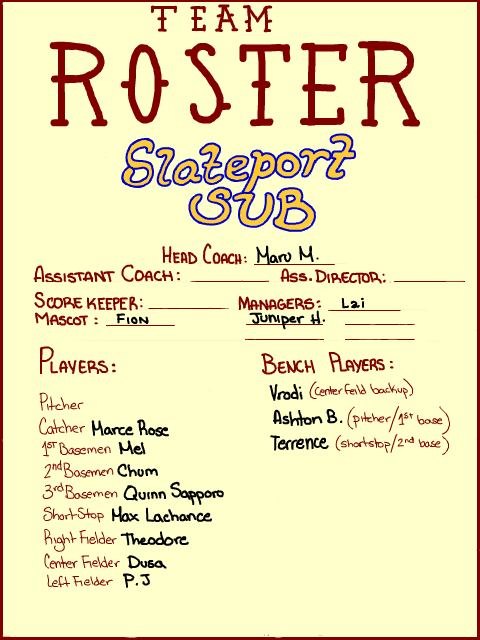 TEAM
ROSTER
Slateport
SUB
HEAD COACH: Maru M.
ASSISTANT COACH: ASS. DIRECTOR:
SCORE KEEPER: MANAGERS: Lzi
MASCOT: FION JUNIPER H.
PLAYERS:
Pitcher
Catcher Marce Rose
1st Basemen Mel
2nd Basemen Chum
3rd Basemen Quinn Sapporo
Short-Stop Max Lachance
Right Fielder Theodore
Center Fielder Dusa
Left Fielder P.J
BENCH PLAYERS:
Vrodi (center feild backup)
Ashton B. (pitcher/1st base)
Terrence (shortstop/2nd base)